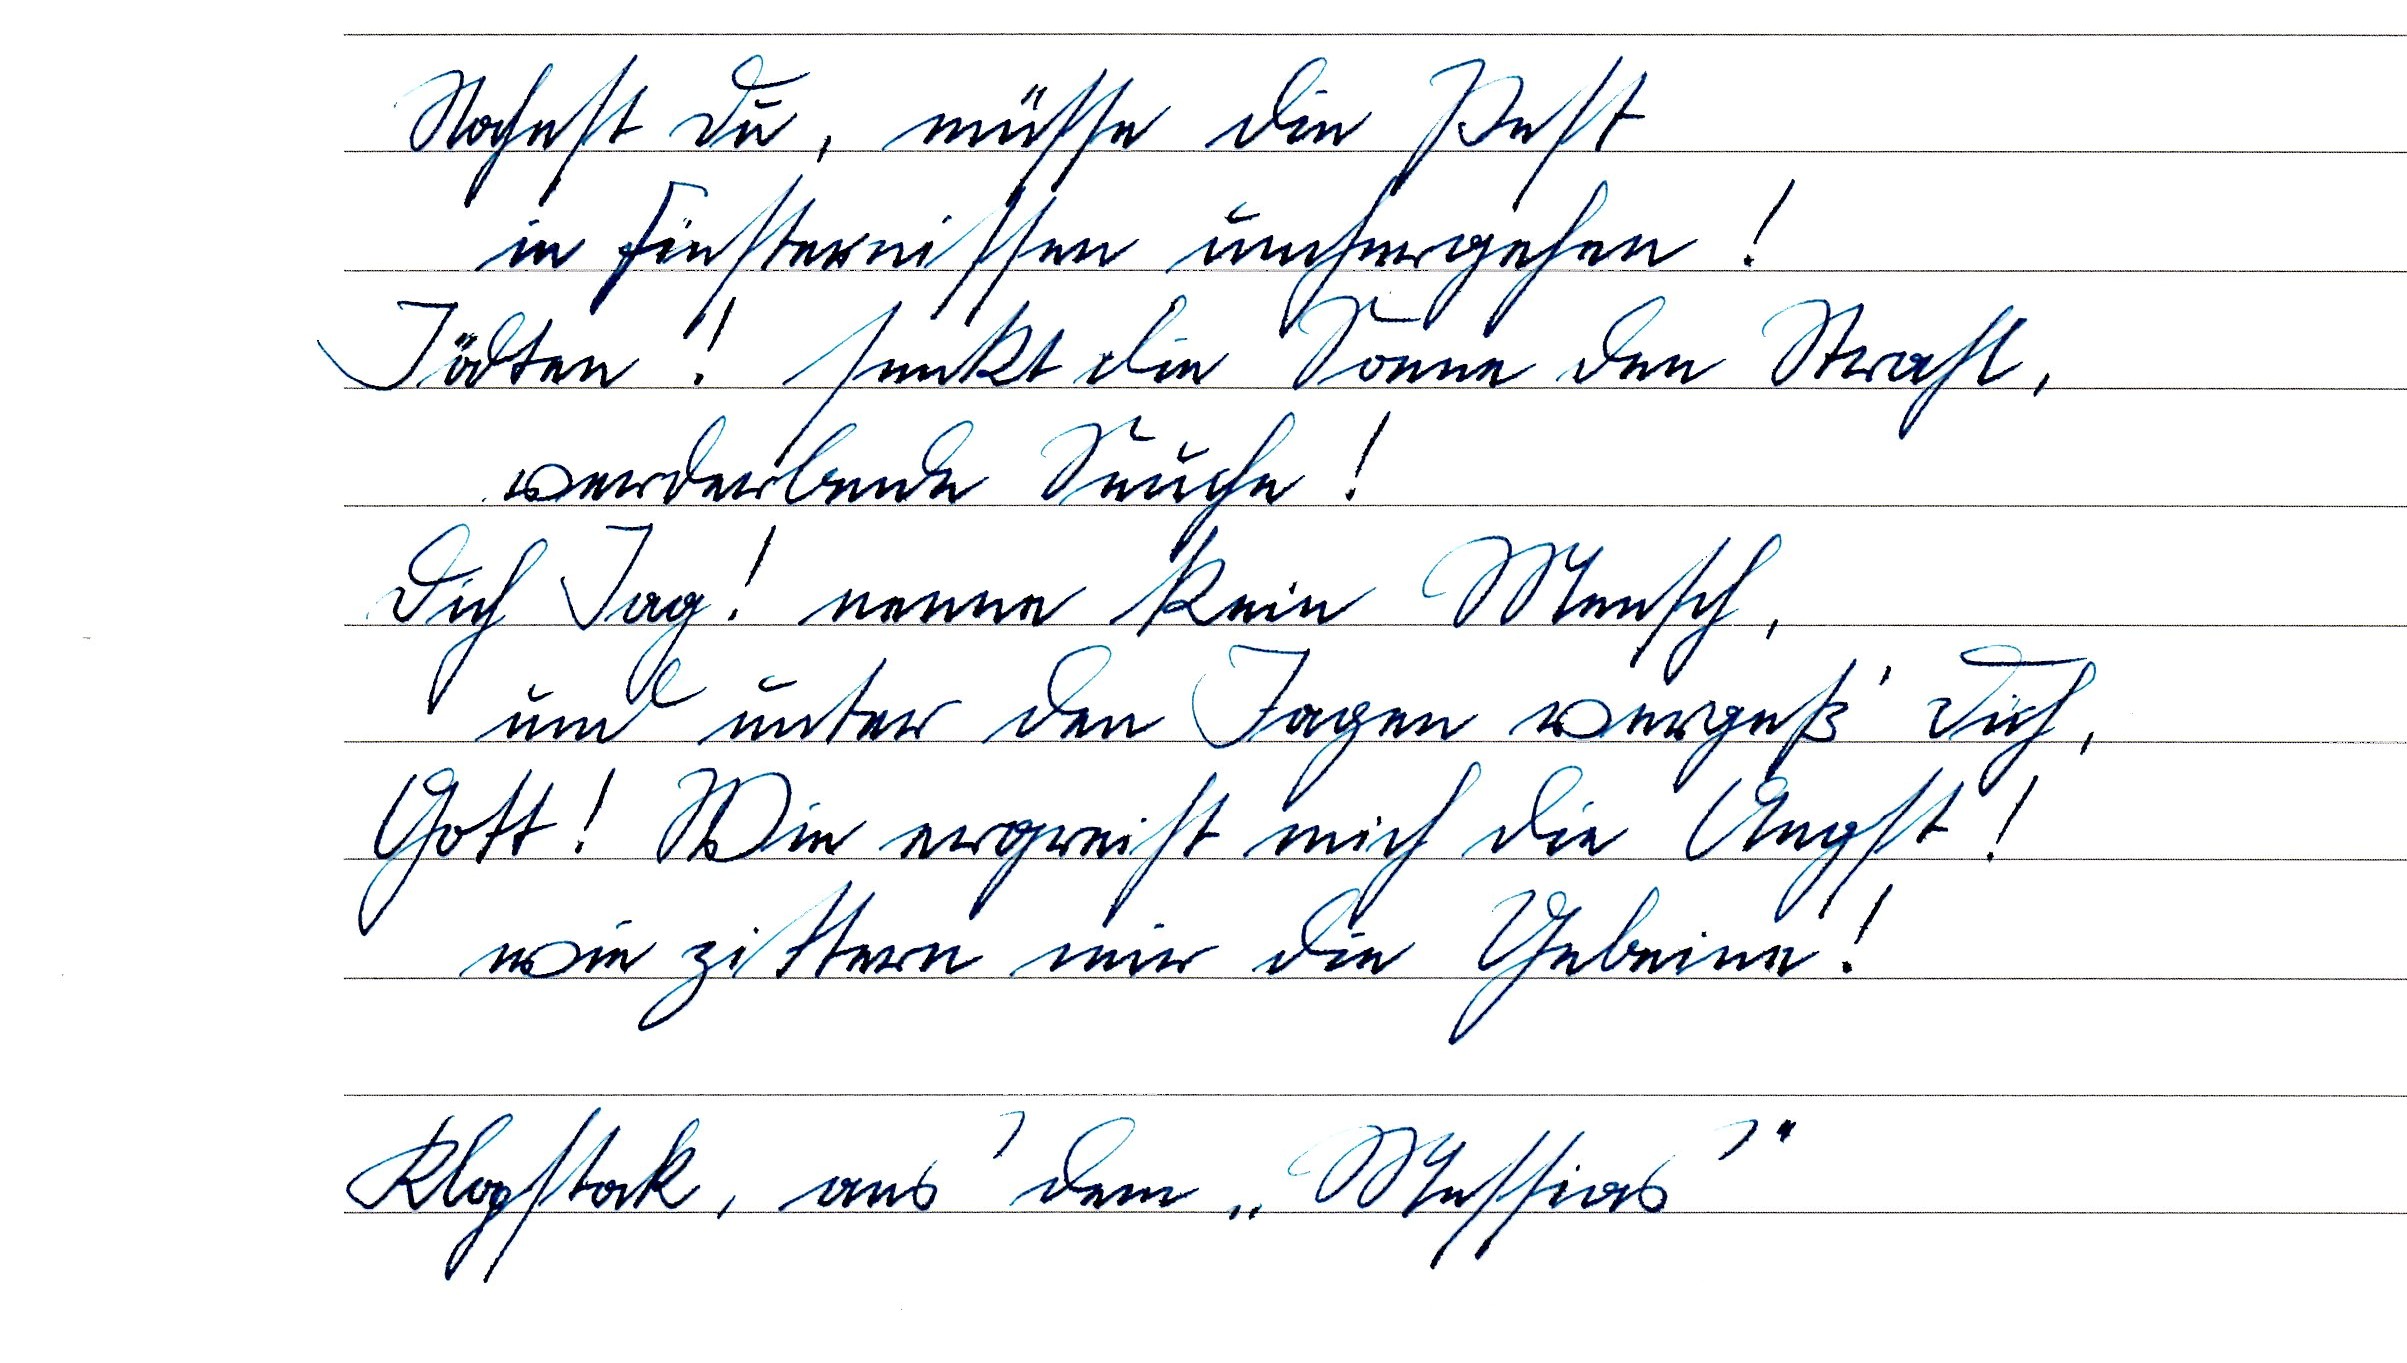 Nahest du, müsse die Pest
in Finsternissen umhergehen!
Tödten! senkt die Sonne den Strahl,
verderbende Seuche!
Dich Tag! nenne kein Mensch,
und unter den Tagen vergeß' dich,
Gott! Wie ergreift mich die Angst!
wie zittern mir die Gebeine!
Klopstock, aus dem „Messias“